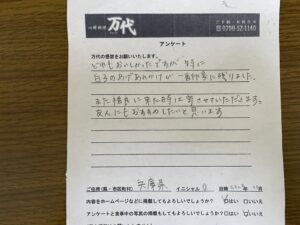 万代
ご予約・お問合せ
☎ 0798-52-1140
アンケート
万代の感想をお願いいたします。
どれもおいしかったですが、特に
白子のあげあんかけが一番印象に残りました。
また積月に来た時は寄させていただきます。
友人にもおすすめしたいと思います
ご住所(県・市区町村) 兵庫県 イニシャル O 日時
内容をホームページなどに掲載してもよろしいでしょうか? はい いいえ
アンケートと食事中の写真の掲載もしてもよろしいでしょうか? はい いいえ